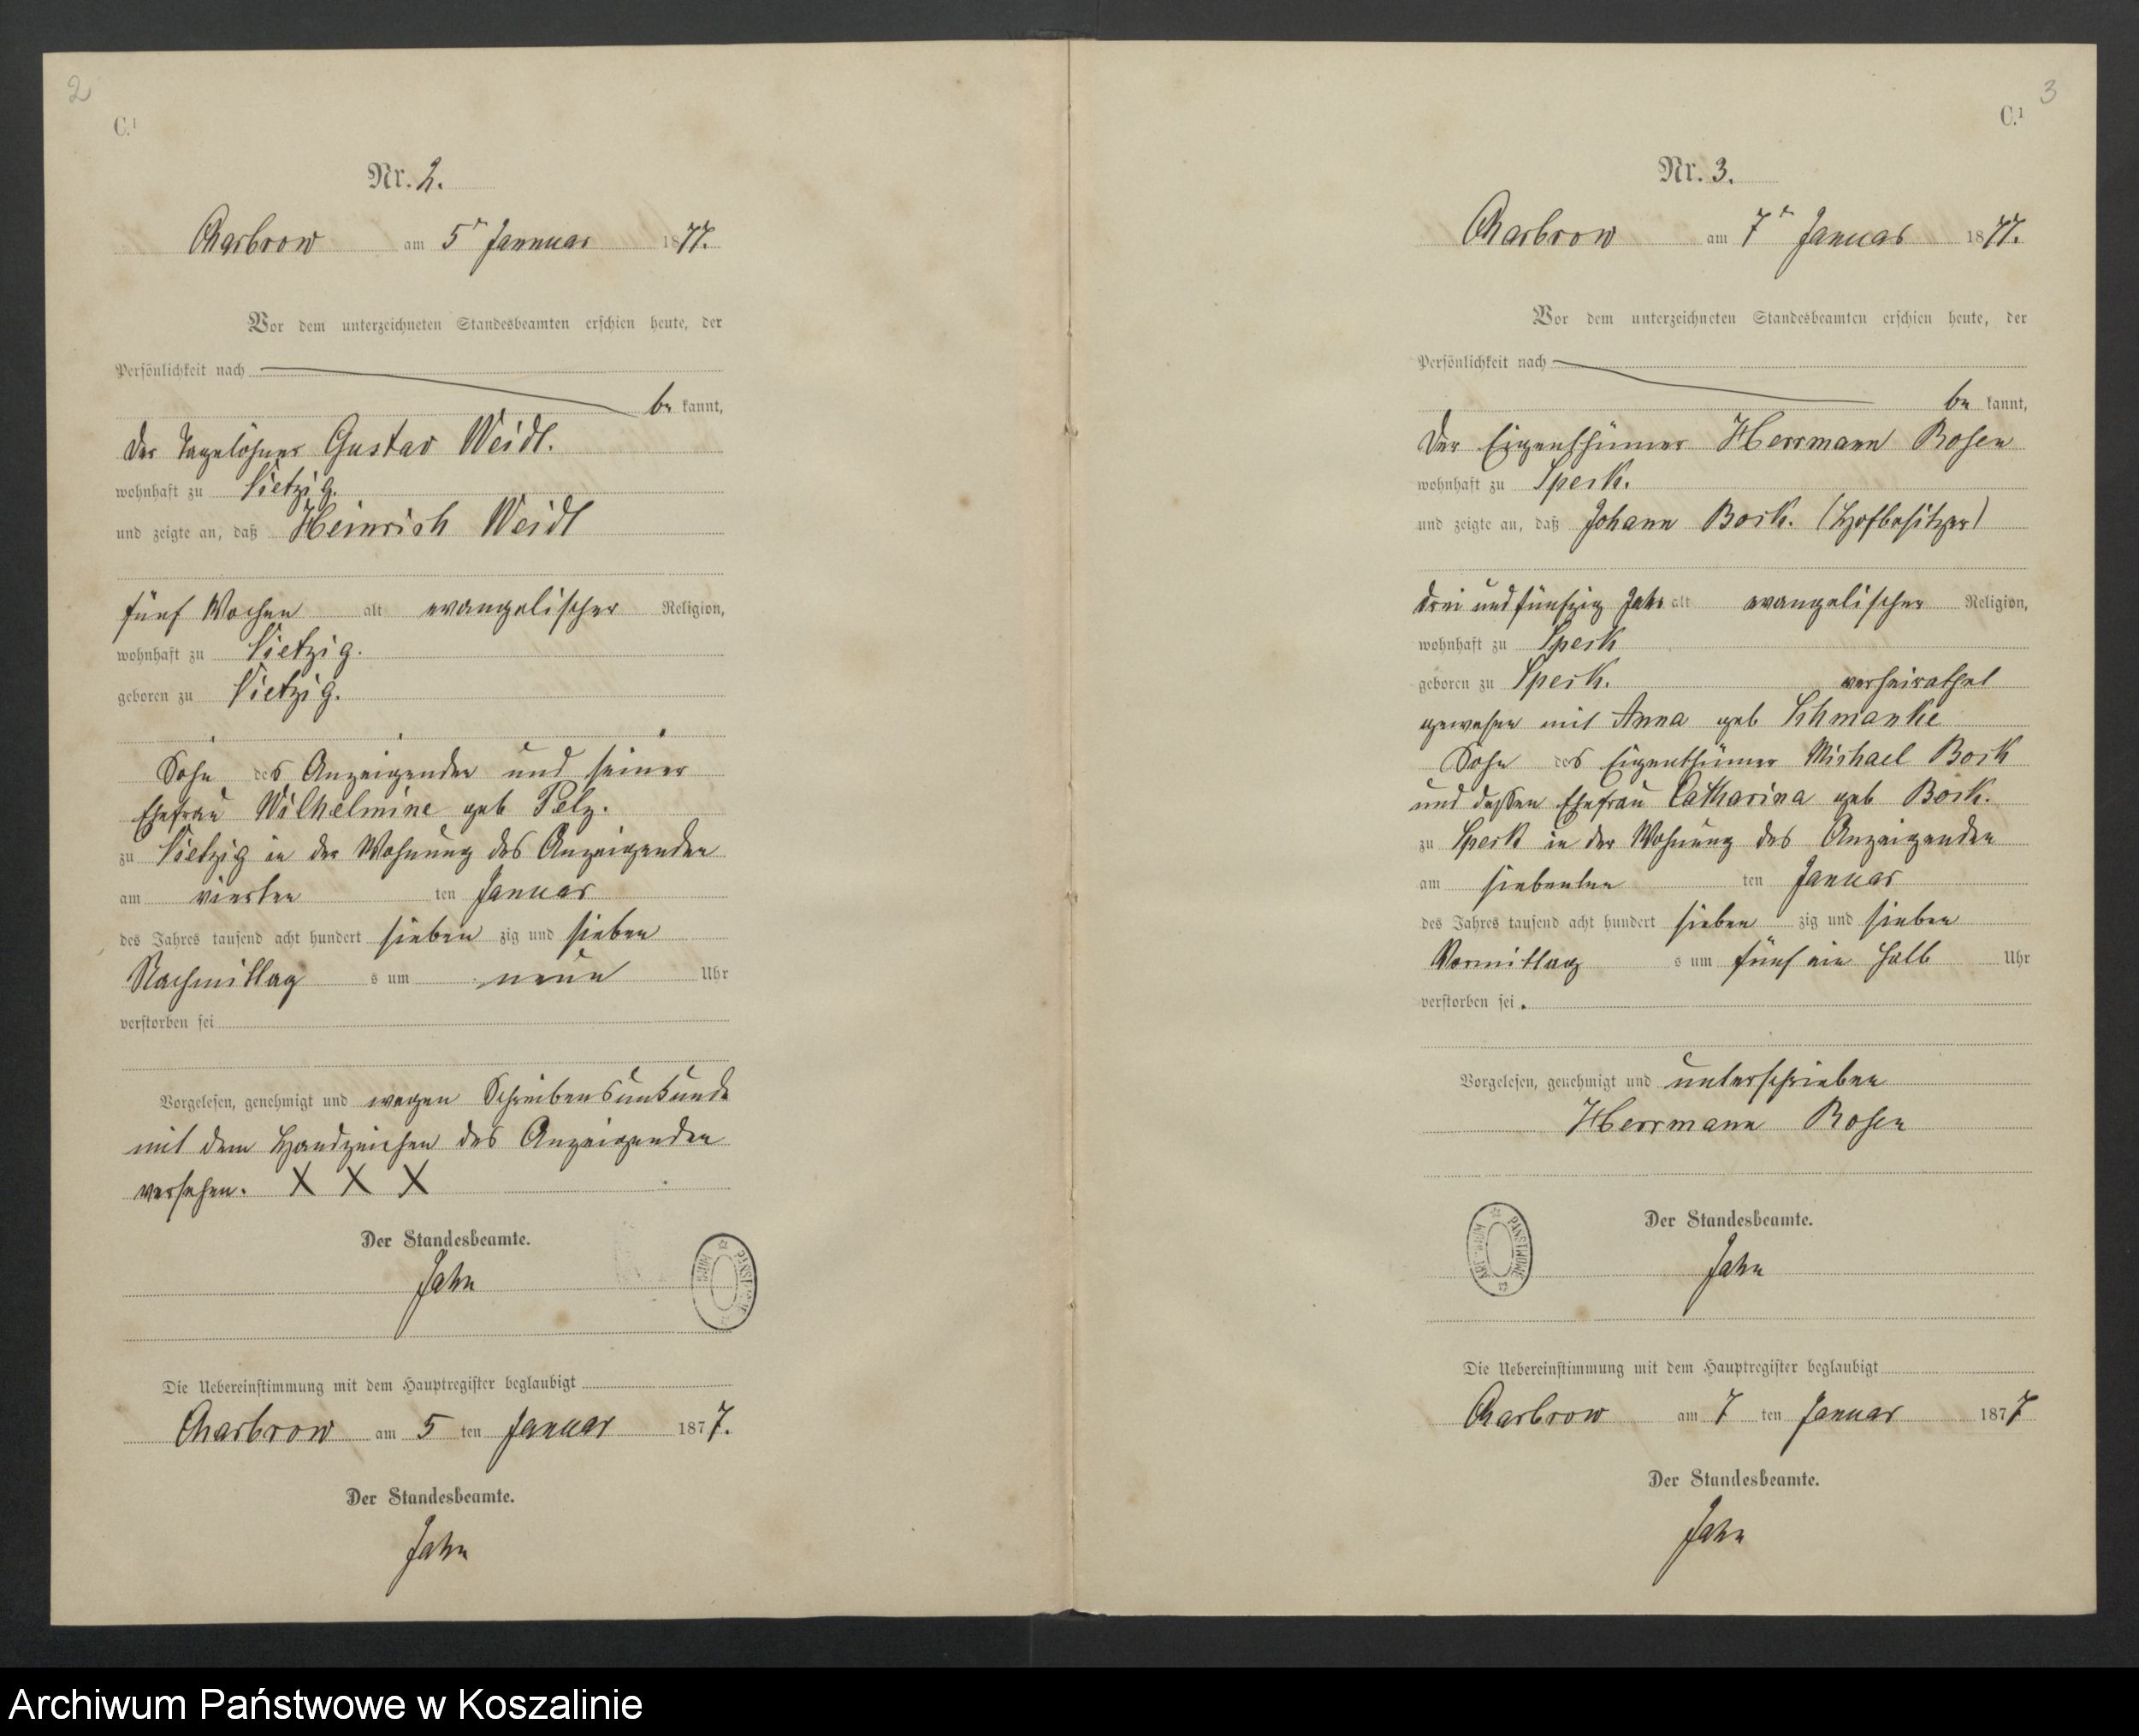 2
C.¹
Nr. 2.
Charbrow am 5ᵗ Jannuar 1877.
Vor dem unterzeichneten Standesbeamten erschien heute, der
Persönlichkeit nach
be kannt,
der Tagelöhner Gustav Weidt.
wohnhaft zu Vietzig.
und zeigte an, daß Heinrich Weidt
fünf Wochen alt evangelischer Religion,
wohnhaft zu Vietzig.
geboren zu Vietzig.
Sohn des Anzeigenden und seiner
Ehefrau Wilhelmine geb Pelz.
zu Vietzig in der Wohnung des Anzeigenden
am vierten ten Januar
des Jahres tausend acht hundert sieben zig und sieben
Nachmittag s um neun Uhr
verstorben sei
Vorgelesen, genehmigt und wegen Schreibensunkunde
mit dem Handzeichen des Anzeigenden
versehen. X X X
Der Standesbeamte.
Jahn
Die Uebereinstimmung mit dem Hauptregister beglaubigt
Charbrow am 5 ten Januar 1877.
Der Standesbeamte.
Jahn
3
C.¹
Nr. 3.
Charbrow am 7ᵗ Januar 1877.
Vor dem unterzeichneten Standesbeamten erschien heute, der
Persönlichkeit nach
be kannt,
Der Eigenthümer Herrmann Rosen
wohnhaft zu Speck.
und zeigte an, daß Johann Bock. (Hofbesitzer)
drei und fünfzig Jahr alt evangelischer Religion,
wohnhaft zu Speck
geboren zu Speck. verheirathet
gewesen mit Anna geb Schmanke
Sohn des Eigenthümer Michael Bock
und dessen Ehefrau Catharina geb Bock.
zu Speck in der Wohnung des Anzeigenden
am siebenten ten Januar
des Jahres tausend acht hundert sieben zig und sieben
Vormittag s um fünf ein halb Uhr
verstorben sei.
Vorgelesen, genehmigt und unterschrieben
Herrmann Rosen
Der Standesbeamte.
Jahn
Die Uebereinstimmung mit dem Hauptregister beglaubigt
Charbrow am 7 ten Januar 1877
Der Standesbeamte.
Jahn
Archiwum Państwowe w Koszalinie